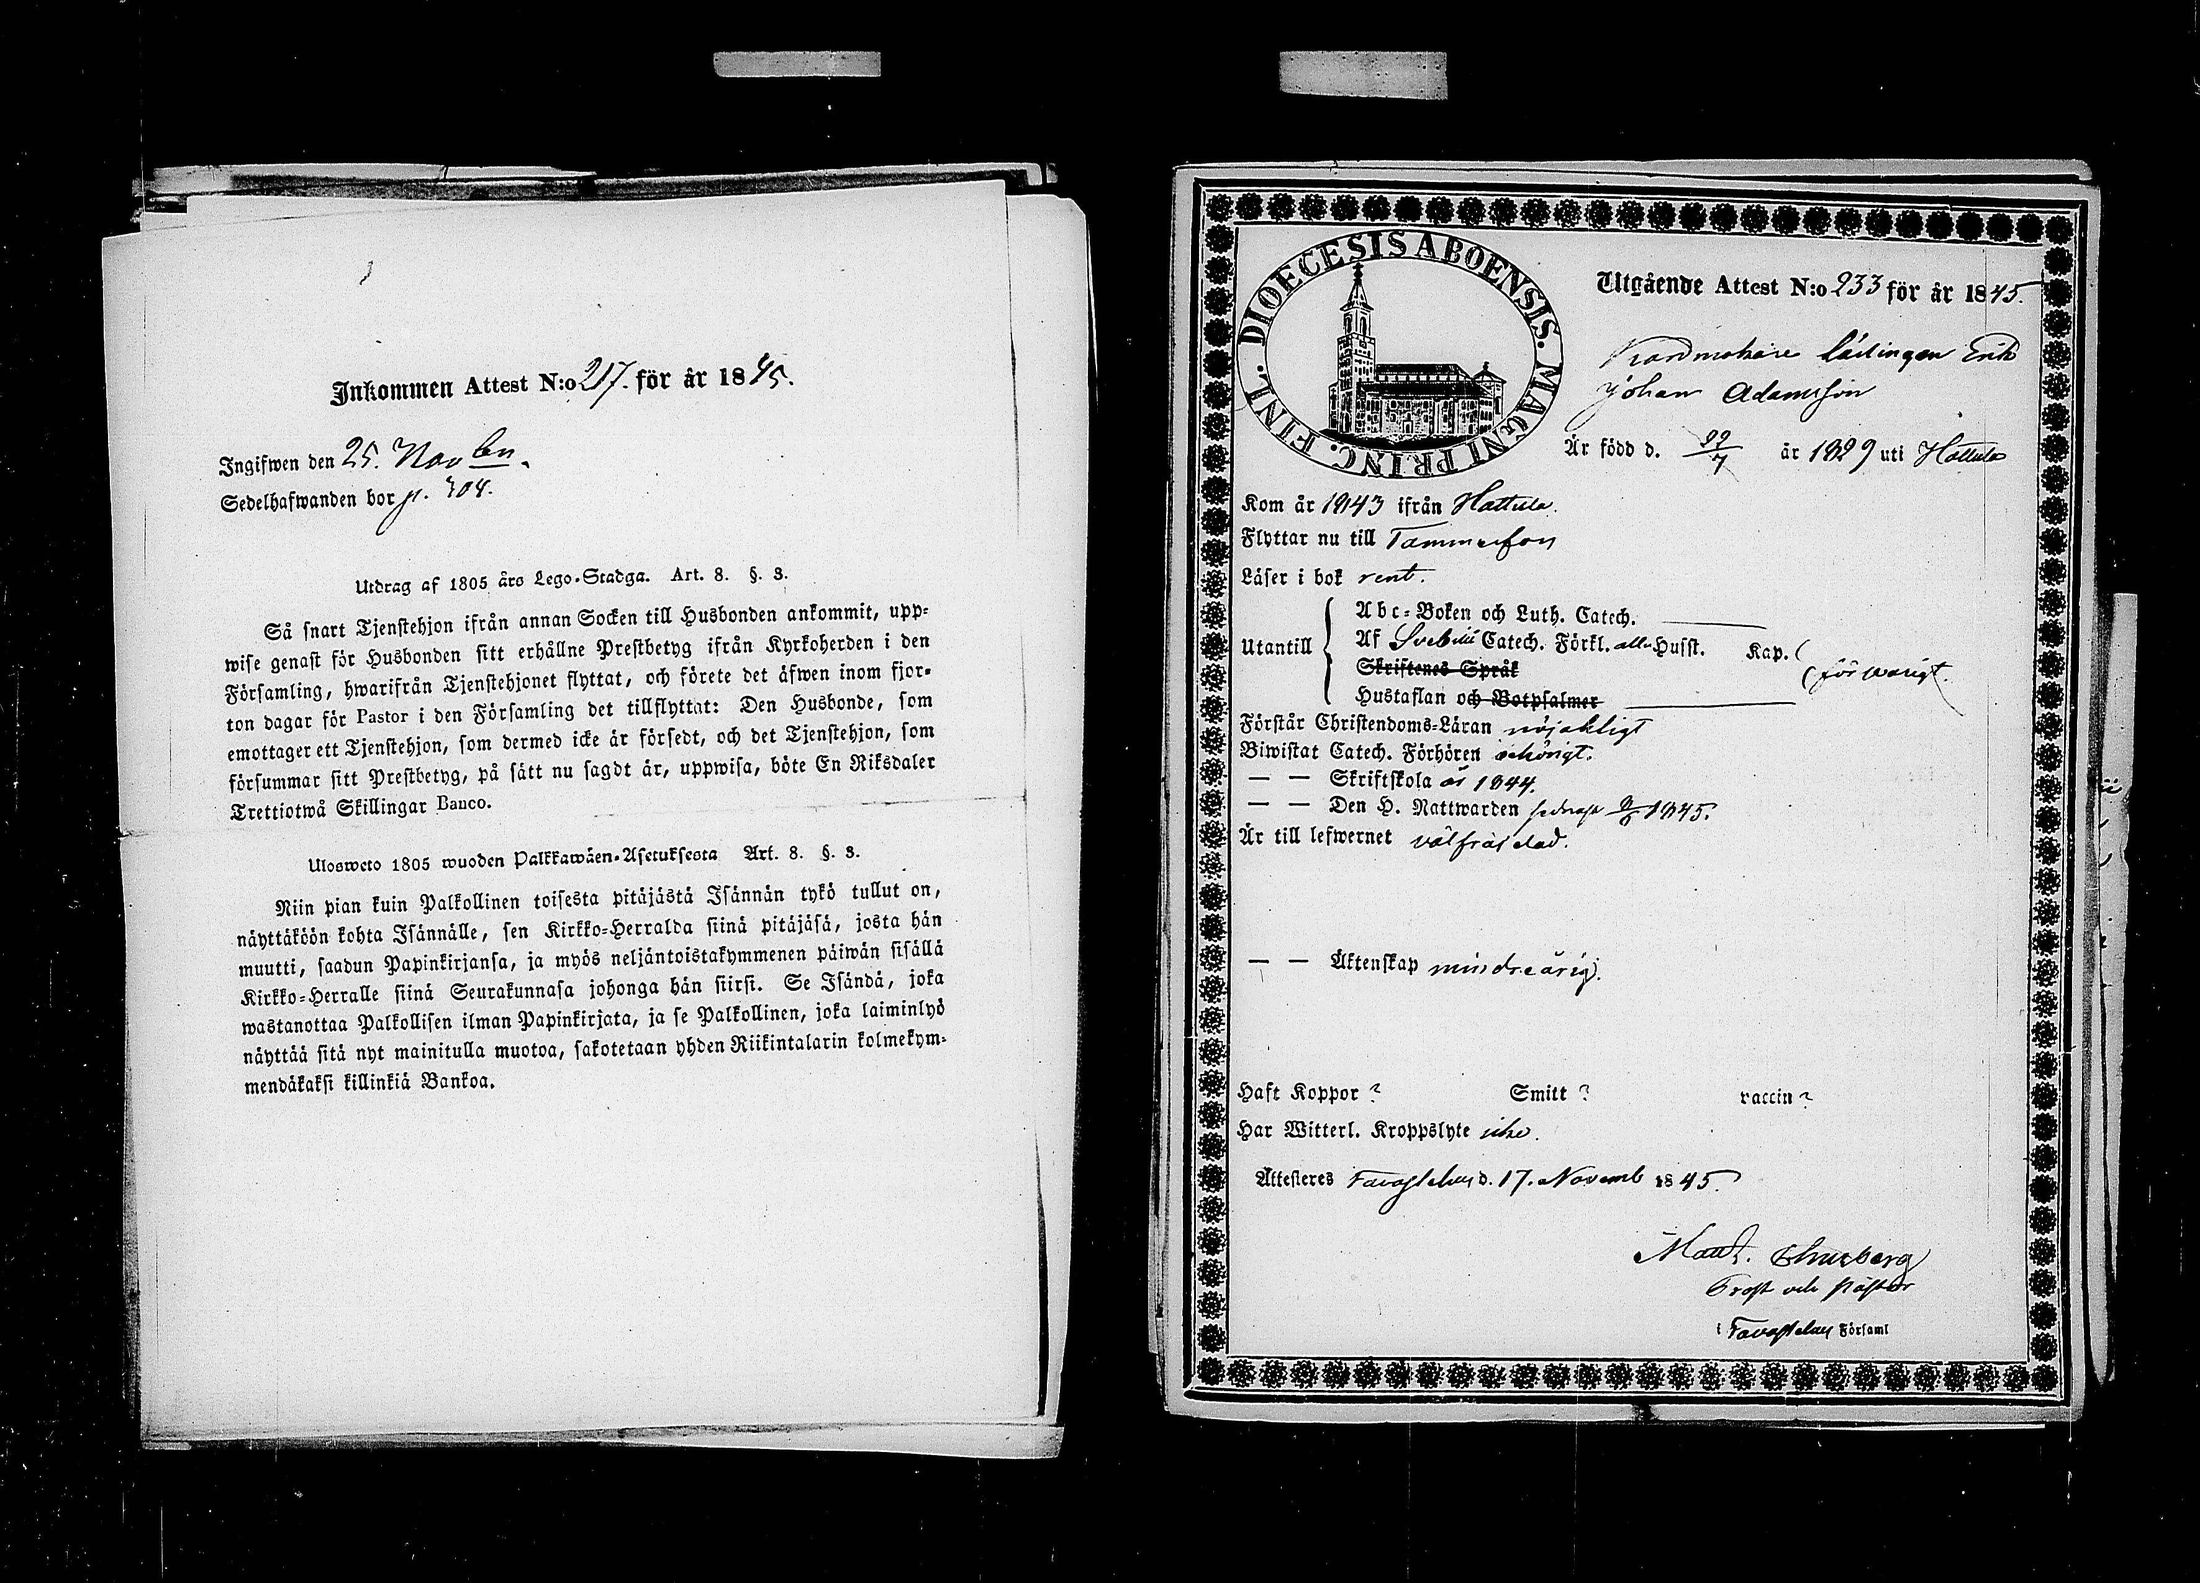 Inkommen Attest N:o 217. för år 1845.
Ingifwen den 25. Novbr.
Sedelhafwanden bor p. 304.
Utdrag af 1805 års Lego-Stadga. Art. 8. §. 3.
Så snart Tjenstehjon ifrån annan Socken till Husbonden ankommit, upp-
wise genast för Husbonden sitt erhållne Prestbetyg ifrån Kyrkoherden i den
Församling, hwarifrån Tjenstehjonet flyttat, och förete det äfwen inom fjor-
ton dagar för Pastor i den Församling det tillflyttat: Den Husbonde, som
emottager ett Tjenstehjon, som dermed icke är försedt, och det Tjenstehjon, som
försummar sitt Prestbetyg, på sätt nu sagdt är, uppwisa, böte En Riksdaler
Trettiotwå Skillingar Banco.
Ulosweto 1805 wuoden Palkkawäen-Asetuksesta Art. 8. §. 3.
Niin pian kuin Palkollinen toisesta pitäjästä Isännän tykö tullut on,
näyttäköön kohta Isännälle, sen Kirkko-Herralda siinä pitäjäsä, josta hän
muutti, saadun Papinkirjansa, ja myös neljäntoistakymmenen päiwän sisällä
Kirkko-Herralle siinä Seurakunnasa johonga hän siirsi. Se Isändä, joka
wastanottaa Palkollisen ilman Papinkirjata, ja se Palkollinen, joka laiminlyö
näyttää sitä nyt mainitulla muotoa, sakotetaan yhden Riikintalarin kolmekym-
mendäkaksi killinkiä Bankoa.
DIOECESIS ABOENSIS. MAGNI PRINC. FINL.
Utgående Attest N:o 233 för år 1845.
lärlingen Erik
Johan Adamsson
Är född d. 22/7 år 1829 uti Hattula
Kom år 1843 ifrån Hattula.
Flyttar nu till Tammerfors
Läser i bok rent.
Utantill
Abc-Boken och Luth. Catech.
Af Svebilii Catech. Förkl. alla Husst. Kap.
Skriftenes Språk
försvarligt.
Hustaflan och Botpsalmer
Förstår Christendoms-Läran nöjakligt
Biwistat Catech. Förhören behörigt.
— — Skriftskola år 1844.
— — Den H. Nattwarden sednast 1845.
Är till lefwernet välfräjdad.
— — Äktenskap minderårig.
Haft Koppor ? Smitt ? vaccin ?
Har Witterl. Kroppslyte icke.
Attesteres Tavastehus d. 17. Novemb 1845.
Prost och Pastor
i Tavastehus Församl